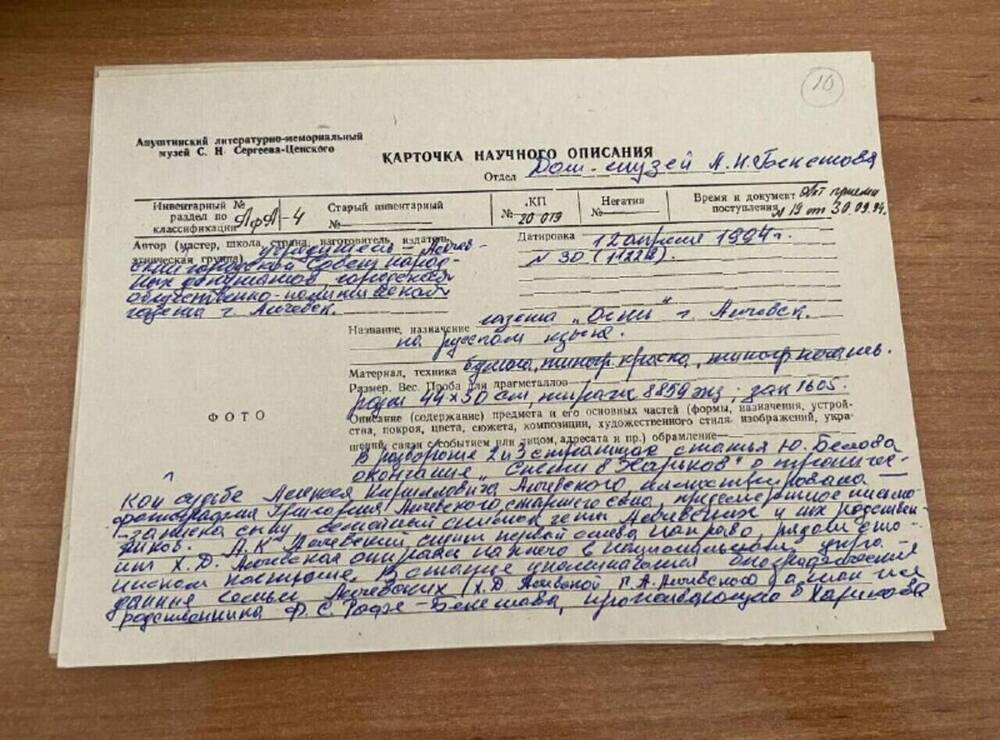 10
Алуштинский литературно-мемориальный
музей С. Н. Сергеева-Ценского
КАРТОЧКА НАУЧНОГО ОПИСАНИЯ
Отдел Дом-музей А.Н.Бекетова
Инвентарный №
раздел по
классификации АфА-4
Старый инвентарный
№
КП
№ 20 019
Негатив
№
Время и документ Акт приема
поступления № 19 от 30.09.94.
Автор (мастер, школа, страна, изготовитель, издатель,
этническая группа) учредитель - Алчев-
ский городской Совет народ-
ных депутатов, городская
общественно-политическая
газета г. Алчевск.
Датировка 12 апреля 1994 г.
N 30 (11228)
Название, назначение газета „Огни" г. Алчевск.
на русском языке.
Материал, техника бумага, типогр. краска, типогр. печать.
Размер. Вес. Проба для драгметаллов
разм 44×30 см, тираж 8859 экз; зак 1605.
ФОТО
Описание (содержание) предмета и его основных частей (формы, назначения, устрой-
ства, покроя, цвета, сюжета, композиции, художественного стиля, изображений, укра-
шений, связи с событием или лицом, адресата и пр.) обрамление
В развороте 2 и 3 страницах статья Ю. Белова
окончание „Спеши в Харьков" о трагичес-
кой судьбе Алексея Кирилловича Алчевского иллюстрирована
фотография Григория Алчевского старшего сына, предсмертное письмо
-записка сыну, семейный снимок Алчевских и их родствен-
ников. А.К. Алчевский сидит первый слева направо, рядом с
ним Х.Д. Алчевская в национальном укра-
инском костюме. В статье упоминается
семьи Алчевских (Х.Д. Алчевской, А.Алчевского) а так же
родственника Ф.С. Рофе-Бекетова, проживающего в Харькове